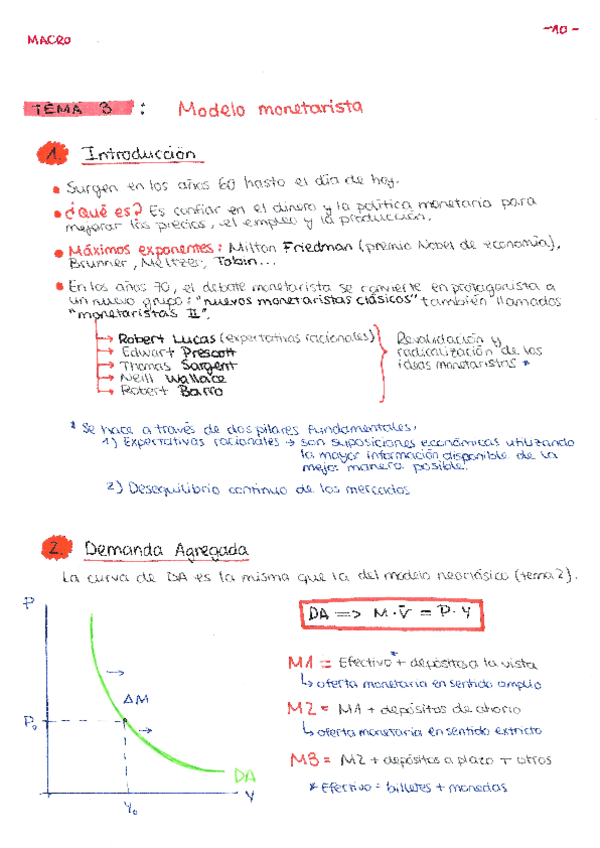 -10-
MACRO
TEMA 3 : Modelo monetarista
1. Introducción
• Surgen en los años 60 hasta el día de hoy.
• ¿Qué es? Es confiar en el dinero y la política monetaria para
mejorar los precios, el empleo y la producción.
• Máximos exponentes: Milton Friedman (premio Nobel de economía),
Brunner, Meltzer, Tobin...
• En los años 70, el debate monetarista se convierte en protagonista a
un nuevo grupo: "nuevos monetaristas clásicos" también llamados
"monetaristas II".
→ Robert Lucas (expectativas racionales)
→ Edwart Prescott
→ Thomas Sargent
→ Neill Wallace
→ Robert Barro
Revalidación y
radicalización de las
ideas monetaristas *
* Se hace a través de dos pilares fundamentales:
1) Expectativas racionales → son suposiciones económicas utilizando
la mayor información disponible de la
mejor manera posible.
2) Desequilibrio continuo de los mercados
2. Demanda Agregada
La curva de DA es la misma que la del modelo neoclásico (tema 2).
P
DA => M · V̄ = P · Y
M1 = Efectivo* + depósitos a la vista
↳ oferta monetaria en sentido amplio
ΔM
M2 = M1 + depósitos de ahorro
↳ oferta monetaria en sentido estricto
P₀
M3 = M2 + depósitos a plazo + otros
DA
* Efectivo = billetes + monedas
Y
Y₀